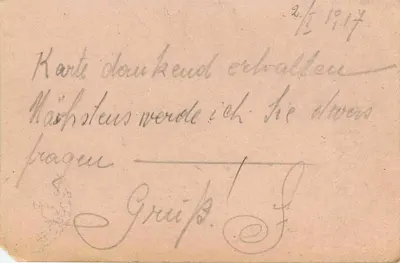 2/I 1917
Karte dankend erhalten
Nächstens werde ich Sie etwas
fragen —
Gruß! F